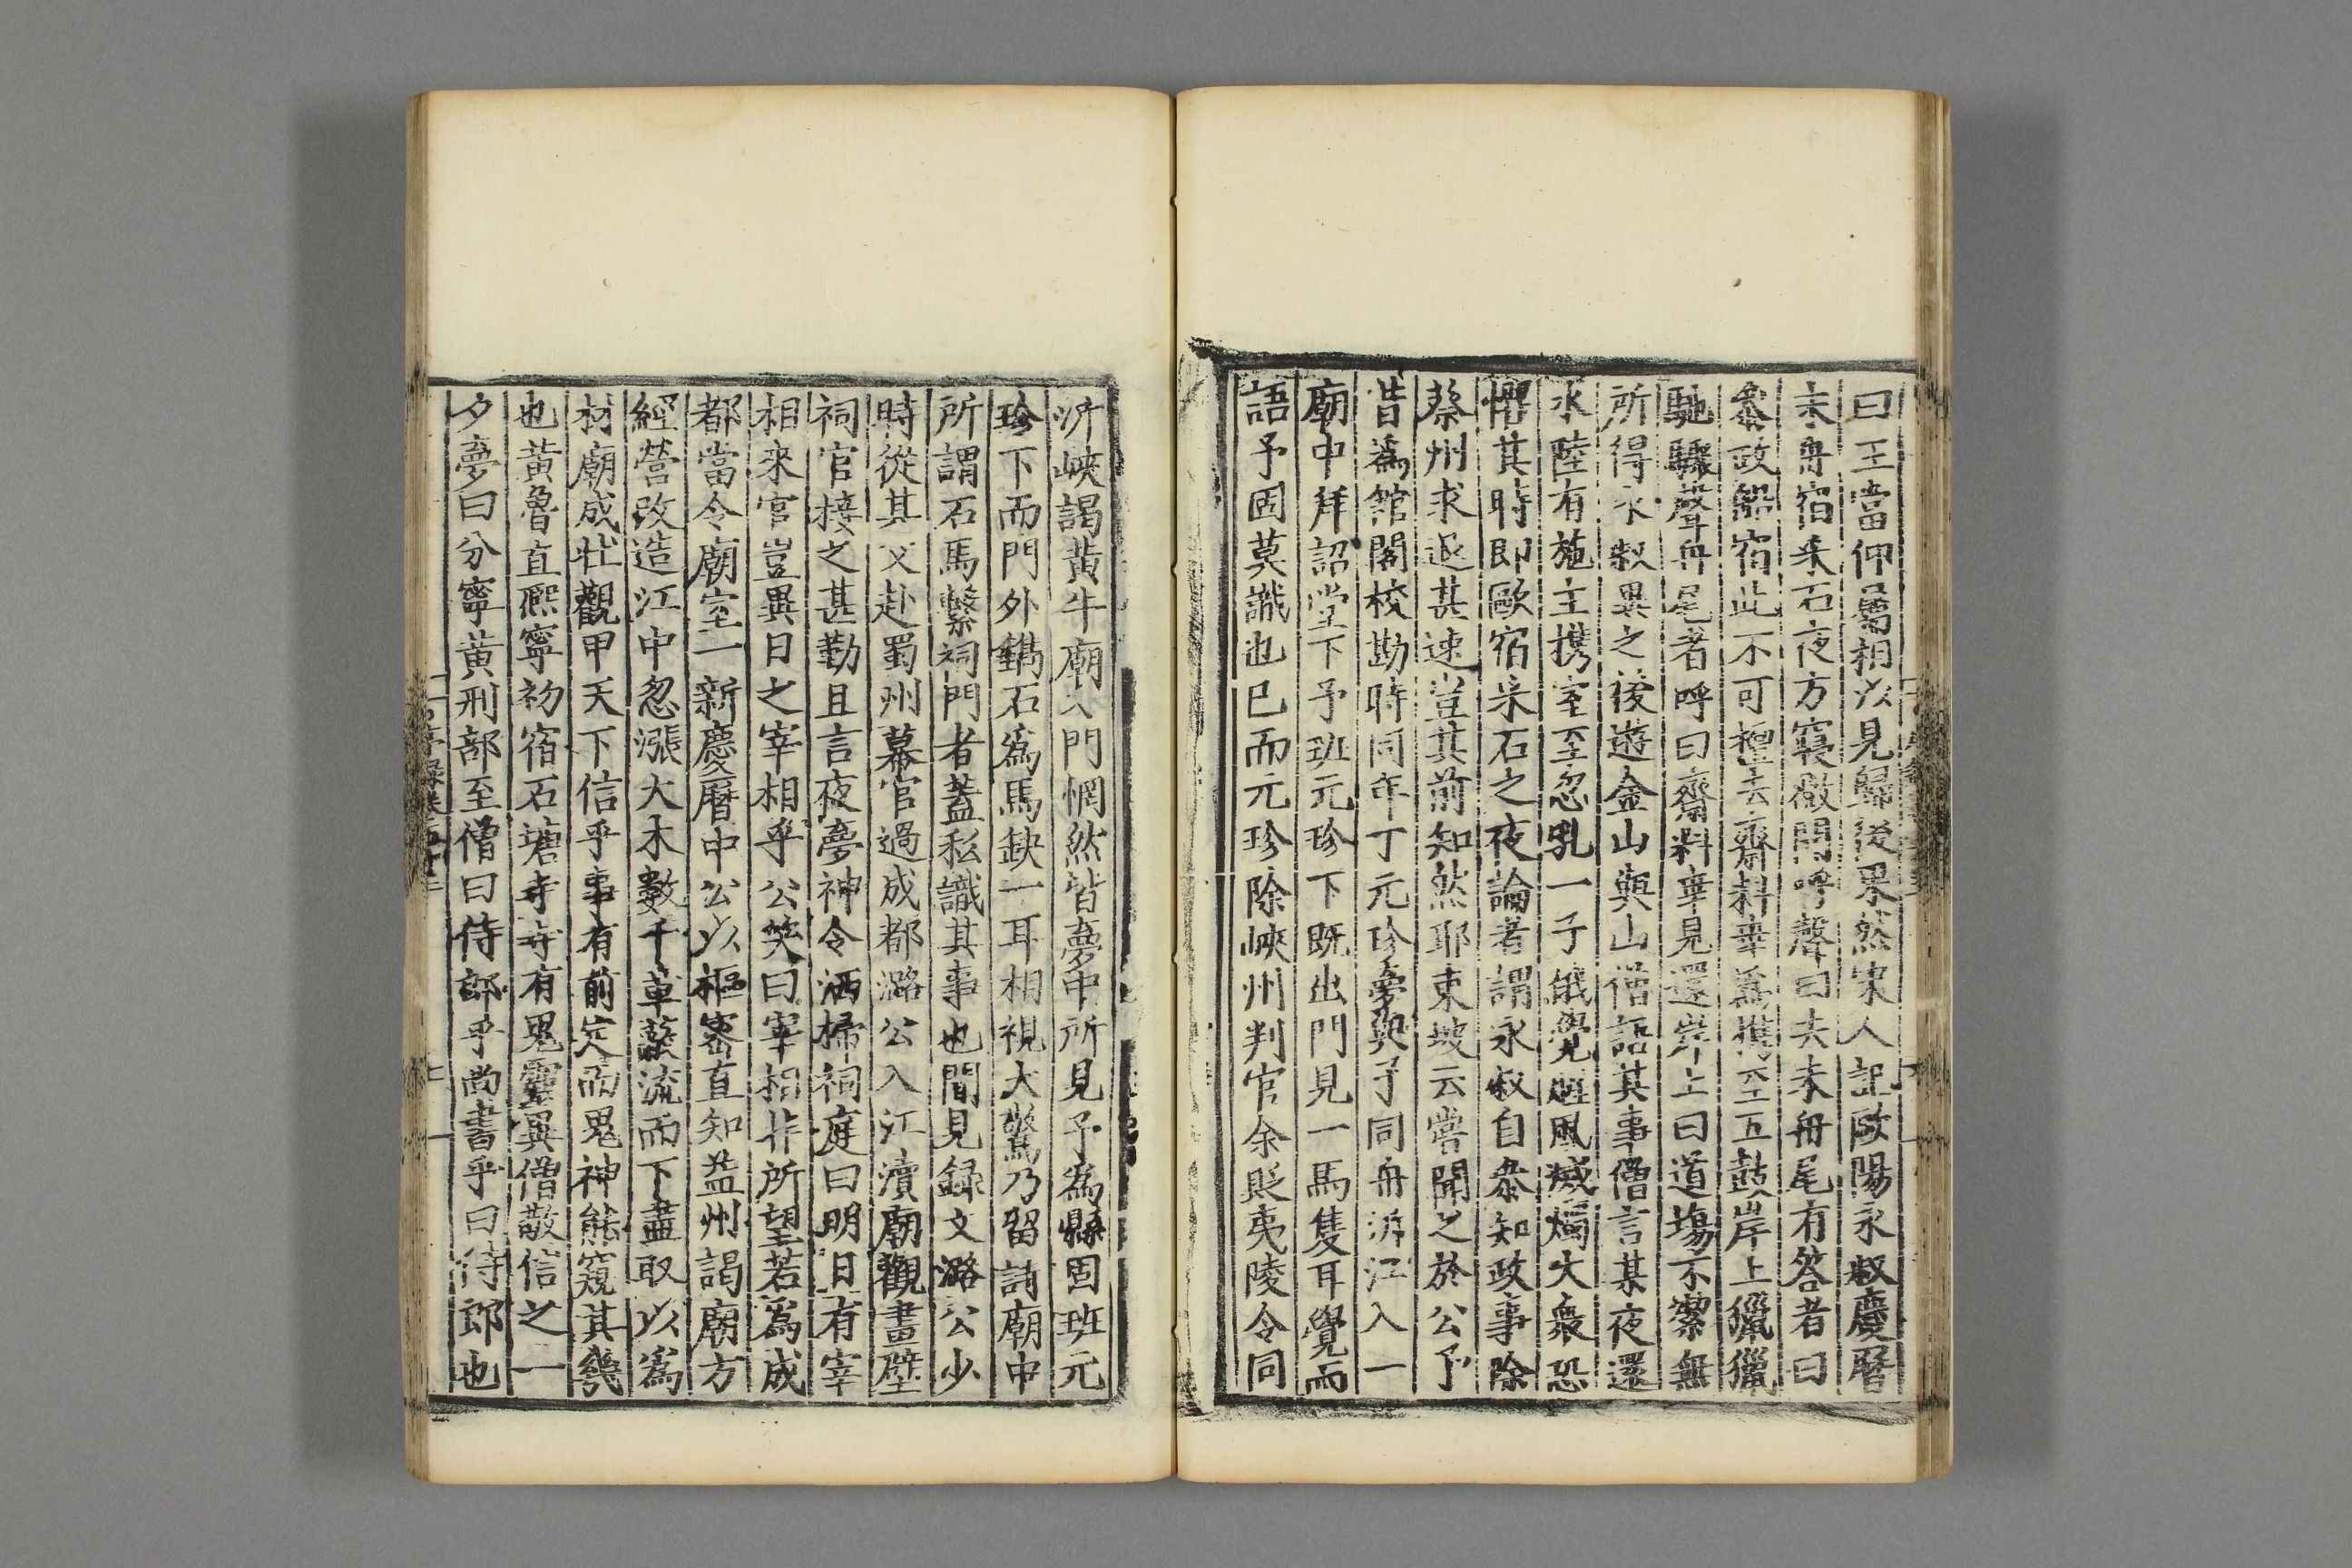 曰王當仰屬相公見歸後果然宋人記歐陽永叔慶曆
末舟宿采石夜方寢微聞呼聲曰去未舟尾有答者曰
叅政船宿此不可擅去齋料幸爲携至五鼓岸上獵獵
馳驟聲舟尾者呼曰齋料幸見還岸上曰道塲不潔無
所得永叔異之後遊金山與山僧語其事僧言某夜還
水陸有施主携室至忽乳一子俄覺腥風滅燭大衆恐
懼其時即歐宿采石之夜論者謂永叔自叅知政事除
蔡州求退甚速豈其前知然耶東坡云嘗聞之於公予
昔爲館閣校勘時同年丁元珍夢與予同舟泝江入一
廟中拜詔堂下予班元珍下旣出門見一馬隻耳覺而
語予固莫識也巳而元珍除峽州判官余貶夷陵令同
泝峽謁黃牛廟入門惘然皆夢中所見予爲縣固班元
珍下而門外鐫石爲馬缺一耳相視大驚乃留詩廟中
所謂石馬繫祠門者蓋私識其事也聞見録文潞公少
時從其父赴蜀州幕官過成都潞公入江瀆廟觀畫壁
祠官接之甚勤且言夜夢神令洒掃祠庭曰明日有宰
相來官豈異日之宰相乎公笑曰宰相非所望若爲成
都當令廟室一新慶曆中公以樞宻直知益州謁廟方
經營改造江中忽漲大木數千章蔽流而下盡取以爲
材廟成壯觀甲天下信乎事有前定而鬼神能窺其幾
也黃魯直熈寧初宿石塘寺寺有鬼靈異僧敬信之一
夕夢曰分寧黃刑部至僧曰侍郎乎尚書乎曰侍郎也